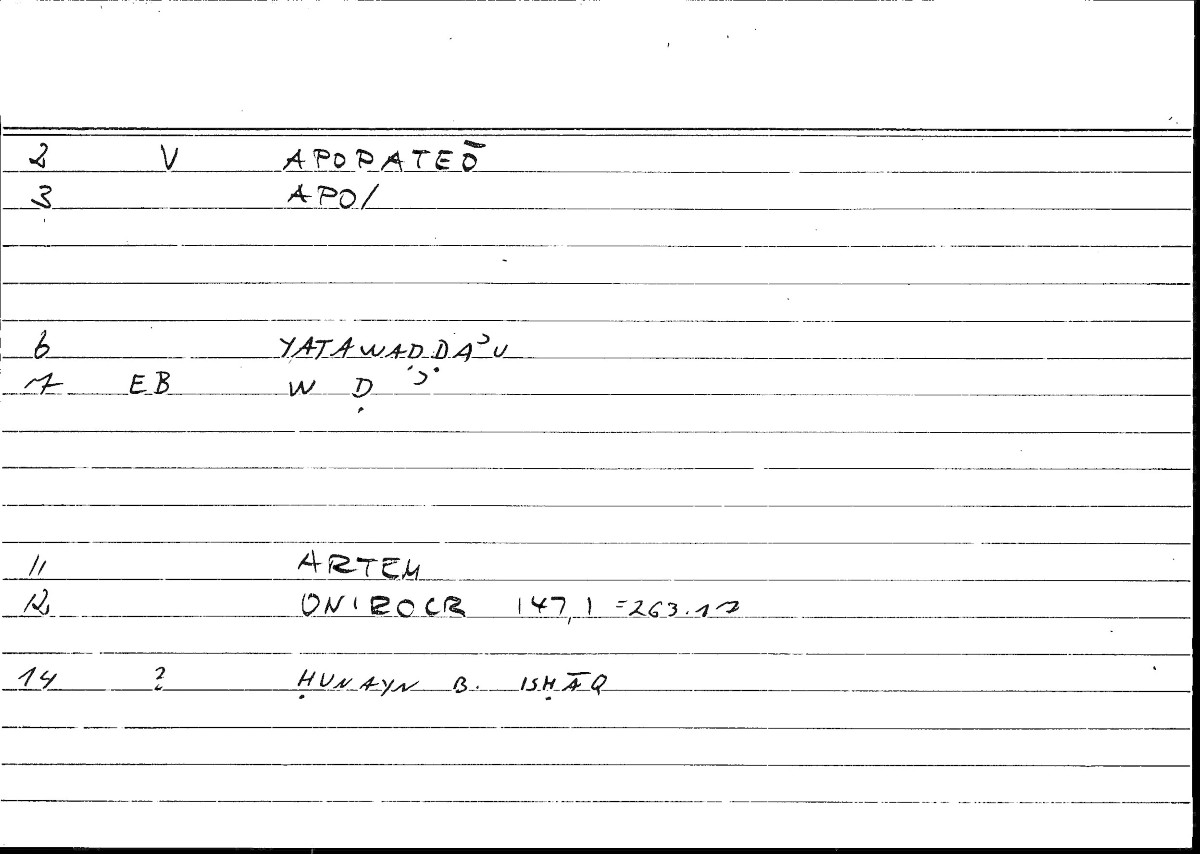 2 V APOPATEŌ
3 APO/
6 YATAWAḌḌAʾU
7 EB W Ḍ ʾ
11 ARTEM
12 ONIROCR 147,1 =263.17
14 ? ḤUNAYN B. ISḤĀQ